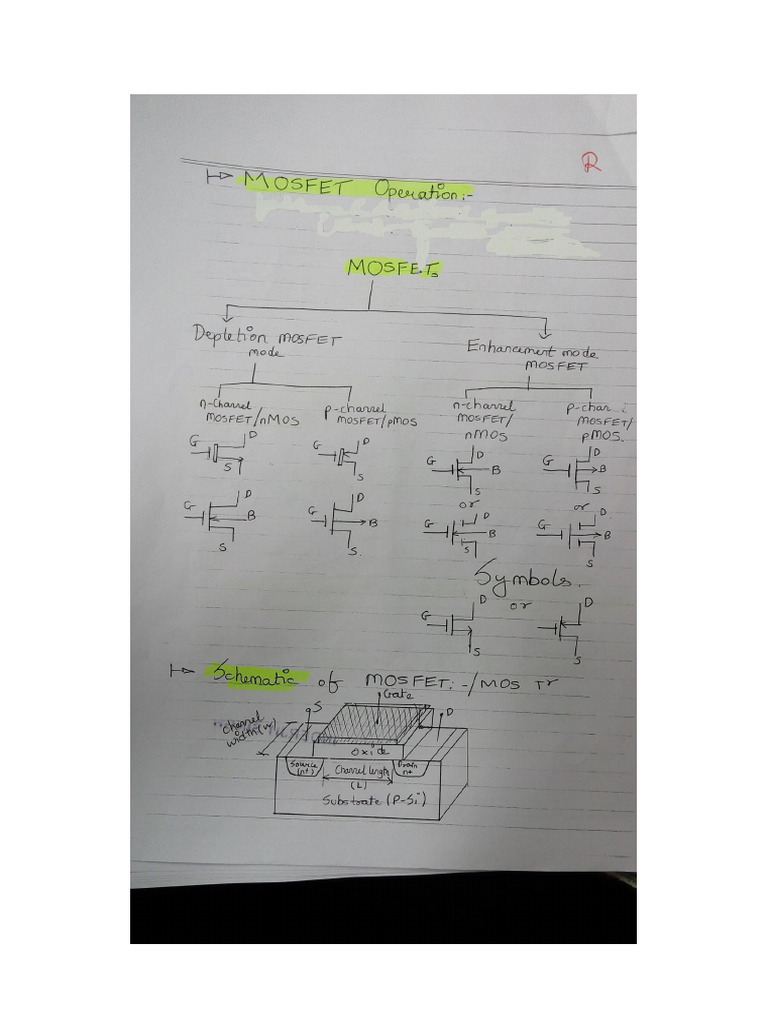 R
MOSFET Operation:-
MOSFETs
Depletion MOSFET
mode
Enhancement mode
MOSFET
n-channel
MOSFET/nMOS
p-channel
MOSFET/pMOS
n-channel
MOSFET/
nMOS
p-chan
MOSFET/
pMOS.
G D S
G D S
G D B S
G D B S
G D B S
G D B S
or
or
G D B S
G D B S
Symbols.
G D S
or
D S
Schematic of MOSFET:-/MOS Tr
Gate
S
D
Channel
width(w)
Oxide
Source
(n+)
Channel length
(L)
Drain
n+
Substrate (P-Si)